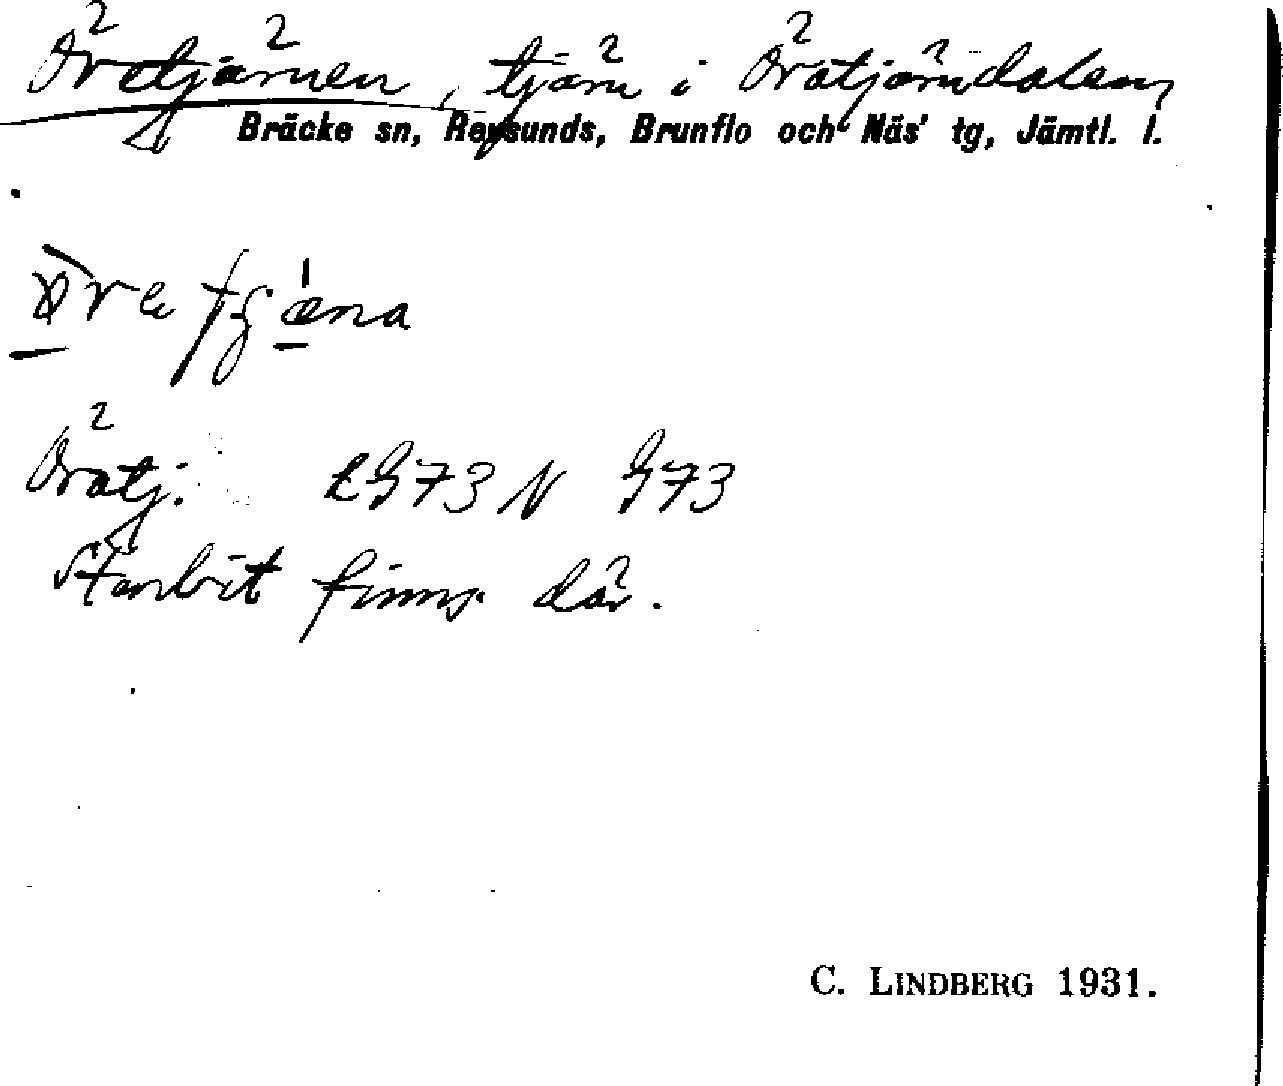 Öratjärnen, tjärn i Öratjärndalen,
Bräcke sn, Revsunds, Brunflo och Näs' tg, Jämtl. l.
Öratj. LG73N G73
finns där.
C. LINDBERG 1931.